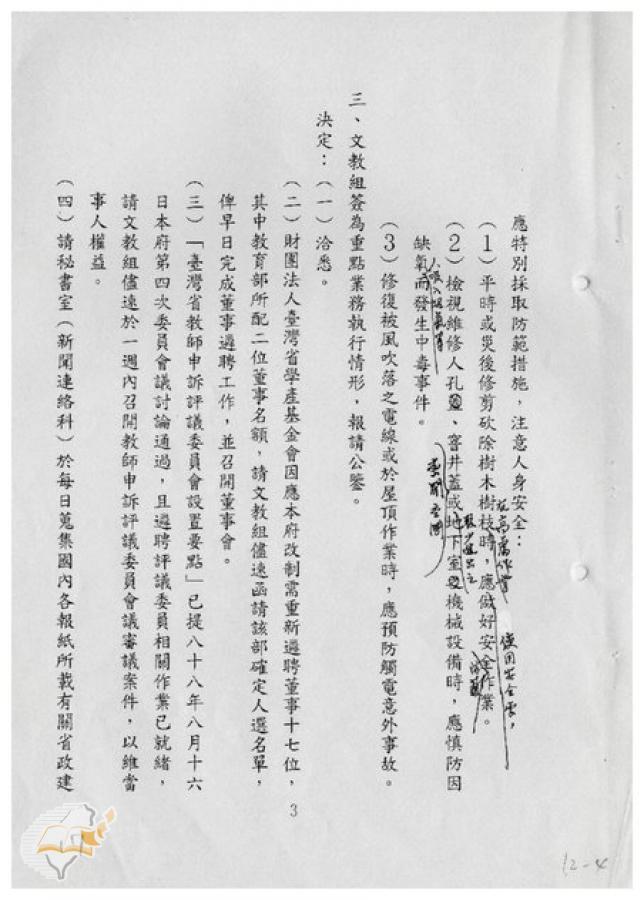 應特別採取防範措施，注意人身安全：
（1）平時或災後修剪砍除樹木樹枝時，應做好安全作業。
（2）檢視維修人孔蓋、窨井蓋或地下室及機械設備時，應慎防因
缺氧而發生中毒事件。
（3）修復被風吹落之電線或於屋頂作業時，應預防觸電意外事故。
三、文教組簽為重點業務執行情形，報請公鑒。
決定：（一）洽悉。
（二）財團法人臺灣省學產基金會因應本府改制需重新遴聘董事十七位，
其中教育部所配二位董事名額，請文教組儘速函請該部確定人選名單，
俾早日完成董事遴聘工作，並召開董事會。
（三）「臺灣省教師申訴評議委員會設置要點」已提八十八年八月十六
日本府第四次委員會議討論通過，且遴聘評議委員相關作業已就緒，
請文教組儘速於一週內召開教師申訴評議委員會議審議案件，以維當
事人權益。
（四）請秘書室（新聞連絡科）於每日蒐集國內各報紙所載有關省政建
3
12-4